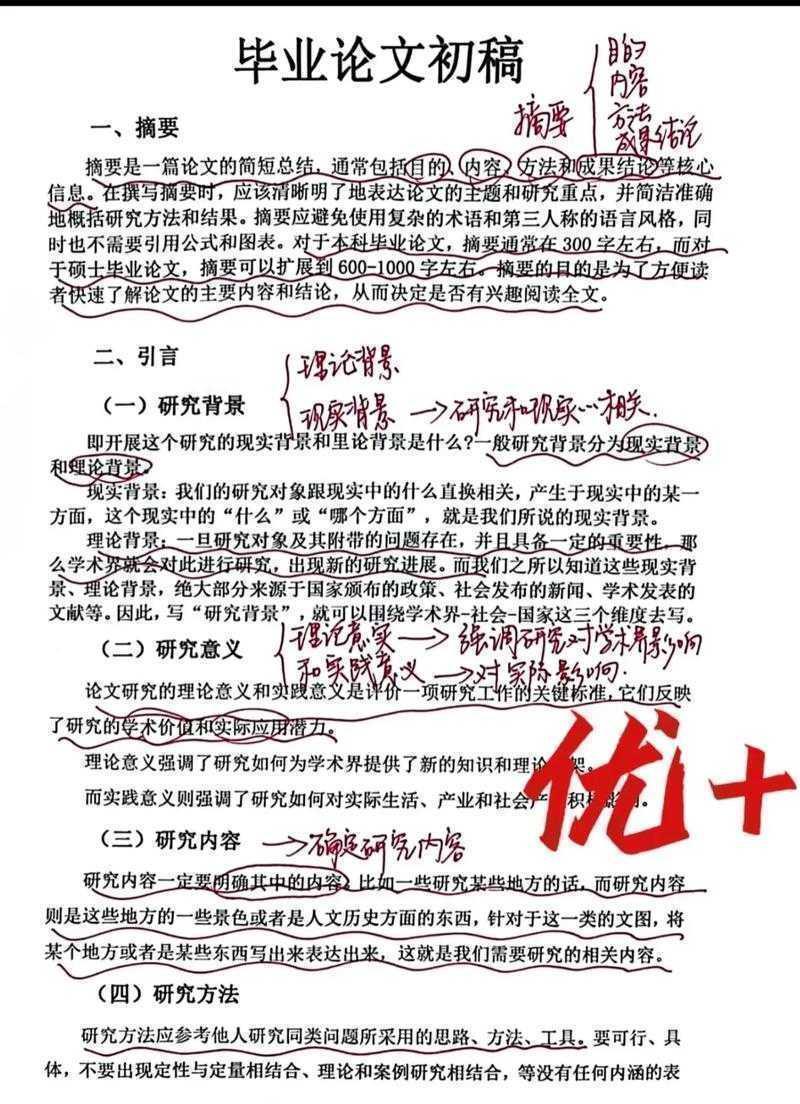 毕业论文初稿
目的
内容
方法
成果结论
摘要
一、摘要
摘要是一篇论文的简短总结，通常包括目的、内容、方法和成果结论等核心
信息。在撰写摘要时，应该清晰明了地表达论文的主题和研究重点，并简洁准确
地概括研究方法和结果。摘要应避免使用复杂的术语和第三人称的语言风格，同
时也不需要引用公式和图表。对于本科毕业论文，摘要通常在 300 字左右，而对
于硕士毕业论文，摘要可以扩展到 600-1000 字左右。摘要的目的是为了方便读
者快速了解论文的主要内容和结论，从而决定是否有兴趣阅读全文。
二、引言
理论背景
（一）研究背景
现实背景 → 研究和现实…相关.
即开展这个研究的现实背景和里论背景是什么?一般研究背景分为现实背景
和理论背景。
现实背景：我们的研究对象跟现实中的什么直换相关，产生于现实中的某一
方面，这个现实中的“什么”或“哪个方面”，就是我们所说的现实背景。
理论背景：一旦研究对象及其附带的问题存在，并且具备一定的重要性，那
么学术界就会对此进行研究，出现新的研究进展。而我们之所以知道这些现实背
景、理论背景，绝大部分来源于国家颁布的政策、社会发布的新闻、学术发表的
文献等。因此，写“研究背景”，就可以围绕学术界-社会-国家这三个维度去写。
（二）研究意义
理论意实 → 强调研究对学术界影响
和实践意义 → 对实际影响.
论文研究的理论意义和实践意义是评价一项研究工作的关键标准，它们反映
了研究的学术价值和实际应用潜力。
理论意义强调了研究如何为学术界提供了新的知识和理论 架。
而实践意义则强调了研究如何对实际生活、产业和社会产 积 影响。
优+
（三）研究内容
→确定研究内容
研究内容一定要明确其中的内容，比如一些研究某些地方的话，而研究内容
则是这些地方的一些景色或者是人文历史方面的东西，针对于这一类的文图，将
某个地方或者是某些东西写出来表达出来，这就是我们需要研究的相关内容。
（四）研究方法
研究方法应参考他人研究同类问题所采用的思路、方法、工具。要可行、具
体，不要出现定性与定量相结合、理论和案例研究相结合，等没有任何内涵的表